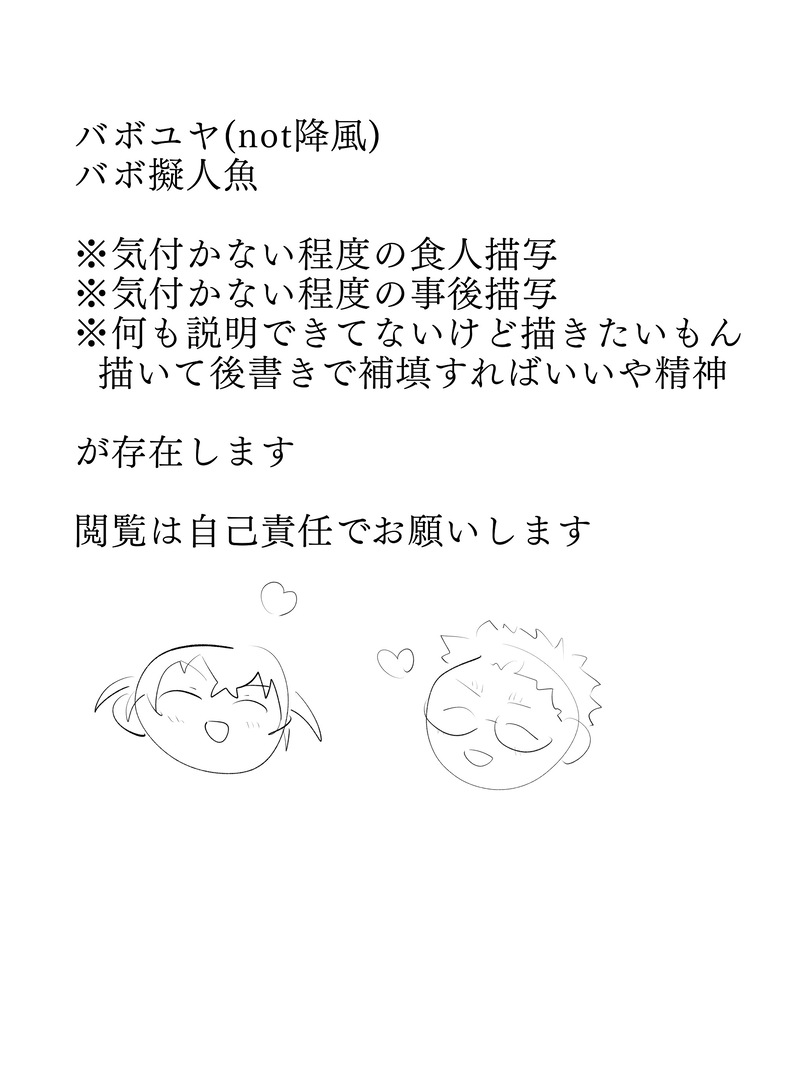 バボユヤ(not降風)
バボ擬人魚
※気付かない程度の食人描写
※気付かない程度の事後描写
※何も説明できてないけど描きたいもん
描いて後書きで補填すればいいや精神
が存在します
閲覧は自己責任でお願いします